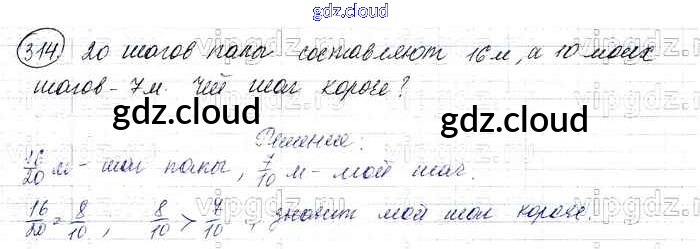 gdz.cloud
314. 20 шагов папы составляют 16 м, а 10 моих
шагов - 7 м. Чей шаг короче?
gdz.cloud gdz.cloud
Решение:
16/20 м - шаг папы, 7/10 м - мой шаг.
16/20 = 8/10, 8/10 > 7/10, значит мой шаг короче.
gdz.cloud